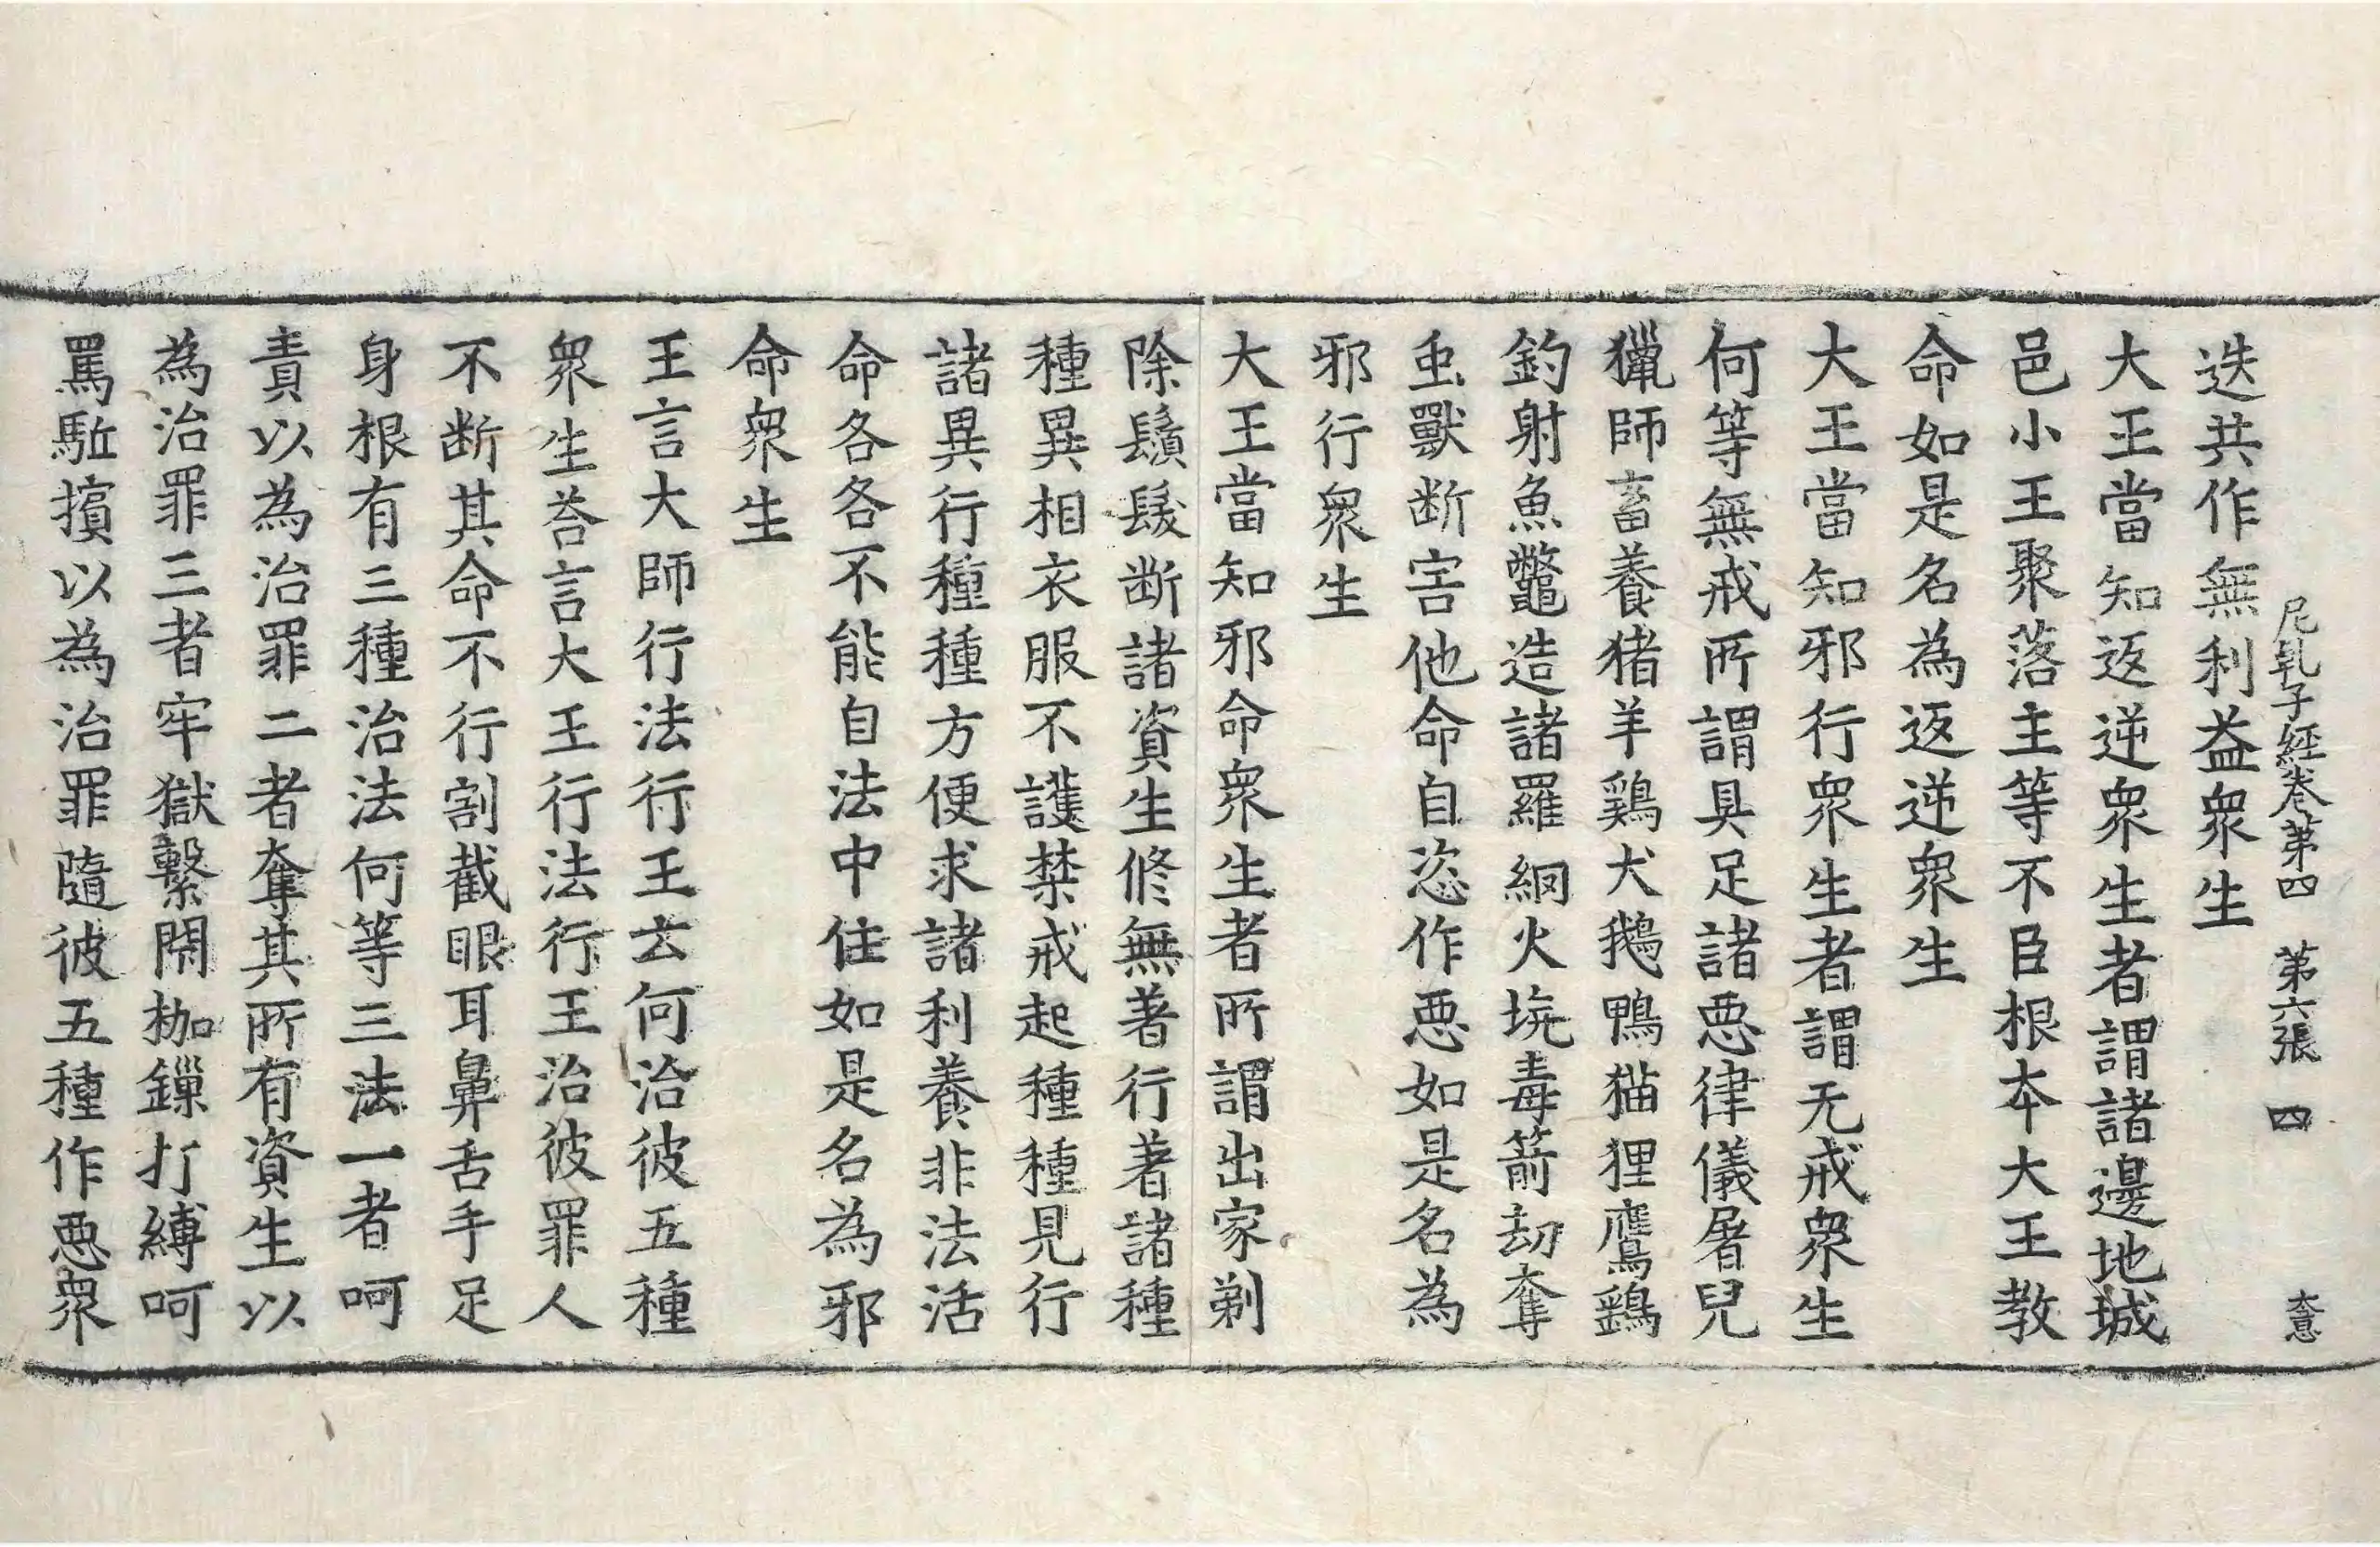 尼乹子經卷第四　第六張　四　大意
迭共作無利益衆生
大王當知返逆衆生者謂諸邊地城
邑小王聚落主等不臣根本大王教
命如是名為返逆衆生
大王當知邪行衆生者謂无戒衆生
何等無戒所謂具足諸悪律儀屠兒
獵師畜養猪羊鷄犬鵝鴨猫狸鷹鷂
釣射魚鼈造諸羅網火坑毒箭劫奪
虫獸断害他命自恣作悪如是名為
邪行衆生
大王當知邪命衆生者所謂出家剃
除鬚髮断諸資生修無著行著諸種
種異相衣服不護禁戒起種種見行
諸異行種種方便求諸利養非法活
命各各不能自法中住如是名為邪
命衆生
王言大師行法行王云何治彼五種
衆生荅言大王行法行王治彼罪人
不断其命不行割截眼耳鼻舌手足
身根有三種治法何等三法一者呵
責以為治罪二者奪其所有資生以
為治罪三者牢獄繫閇枷鏁打縛呵
罵駈擯以為治罪隨彼五種作悪衆